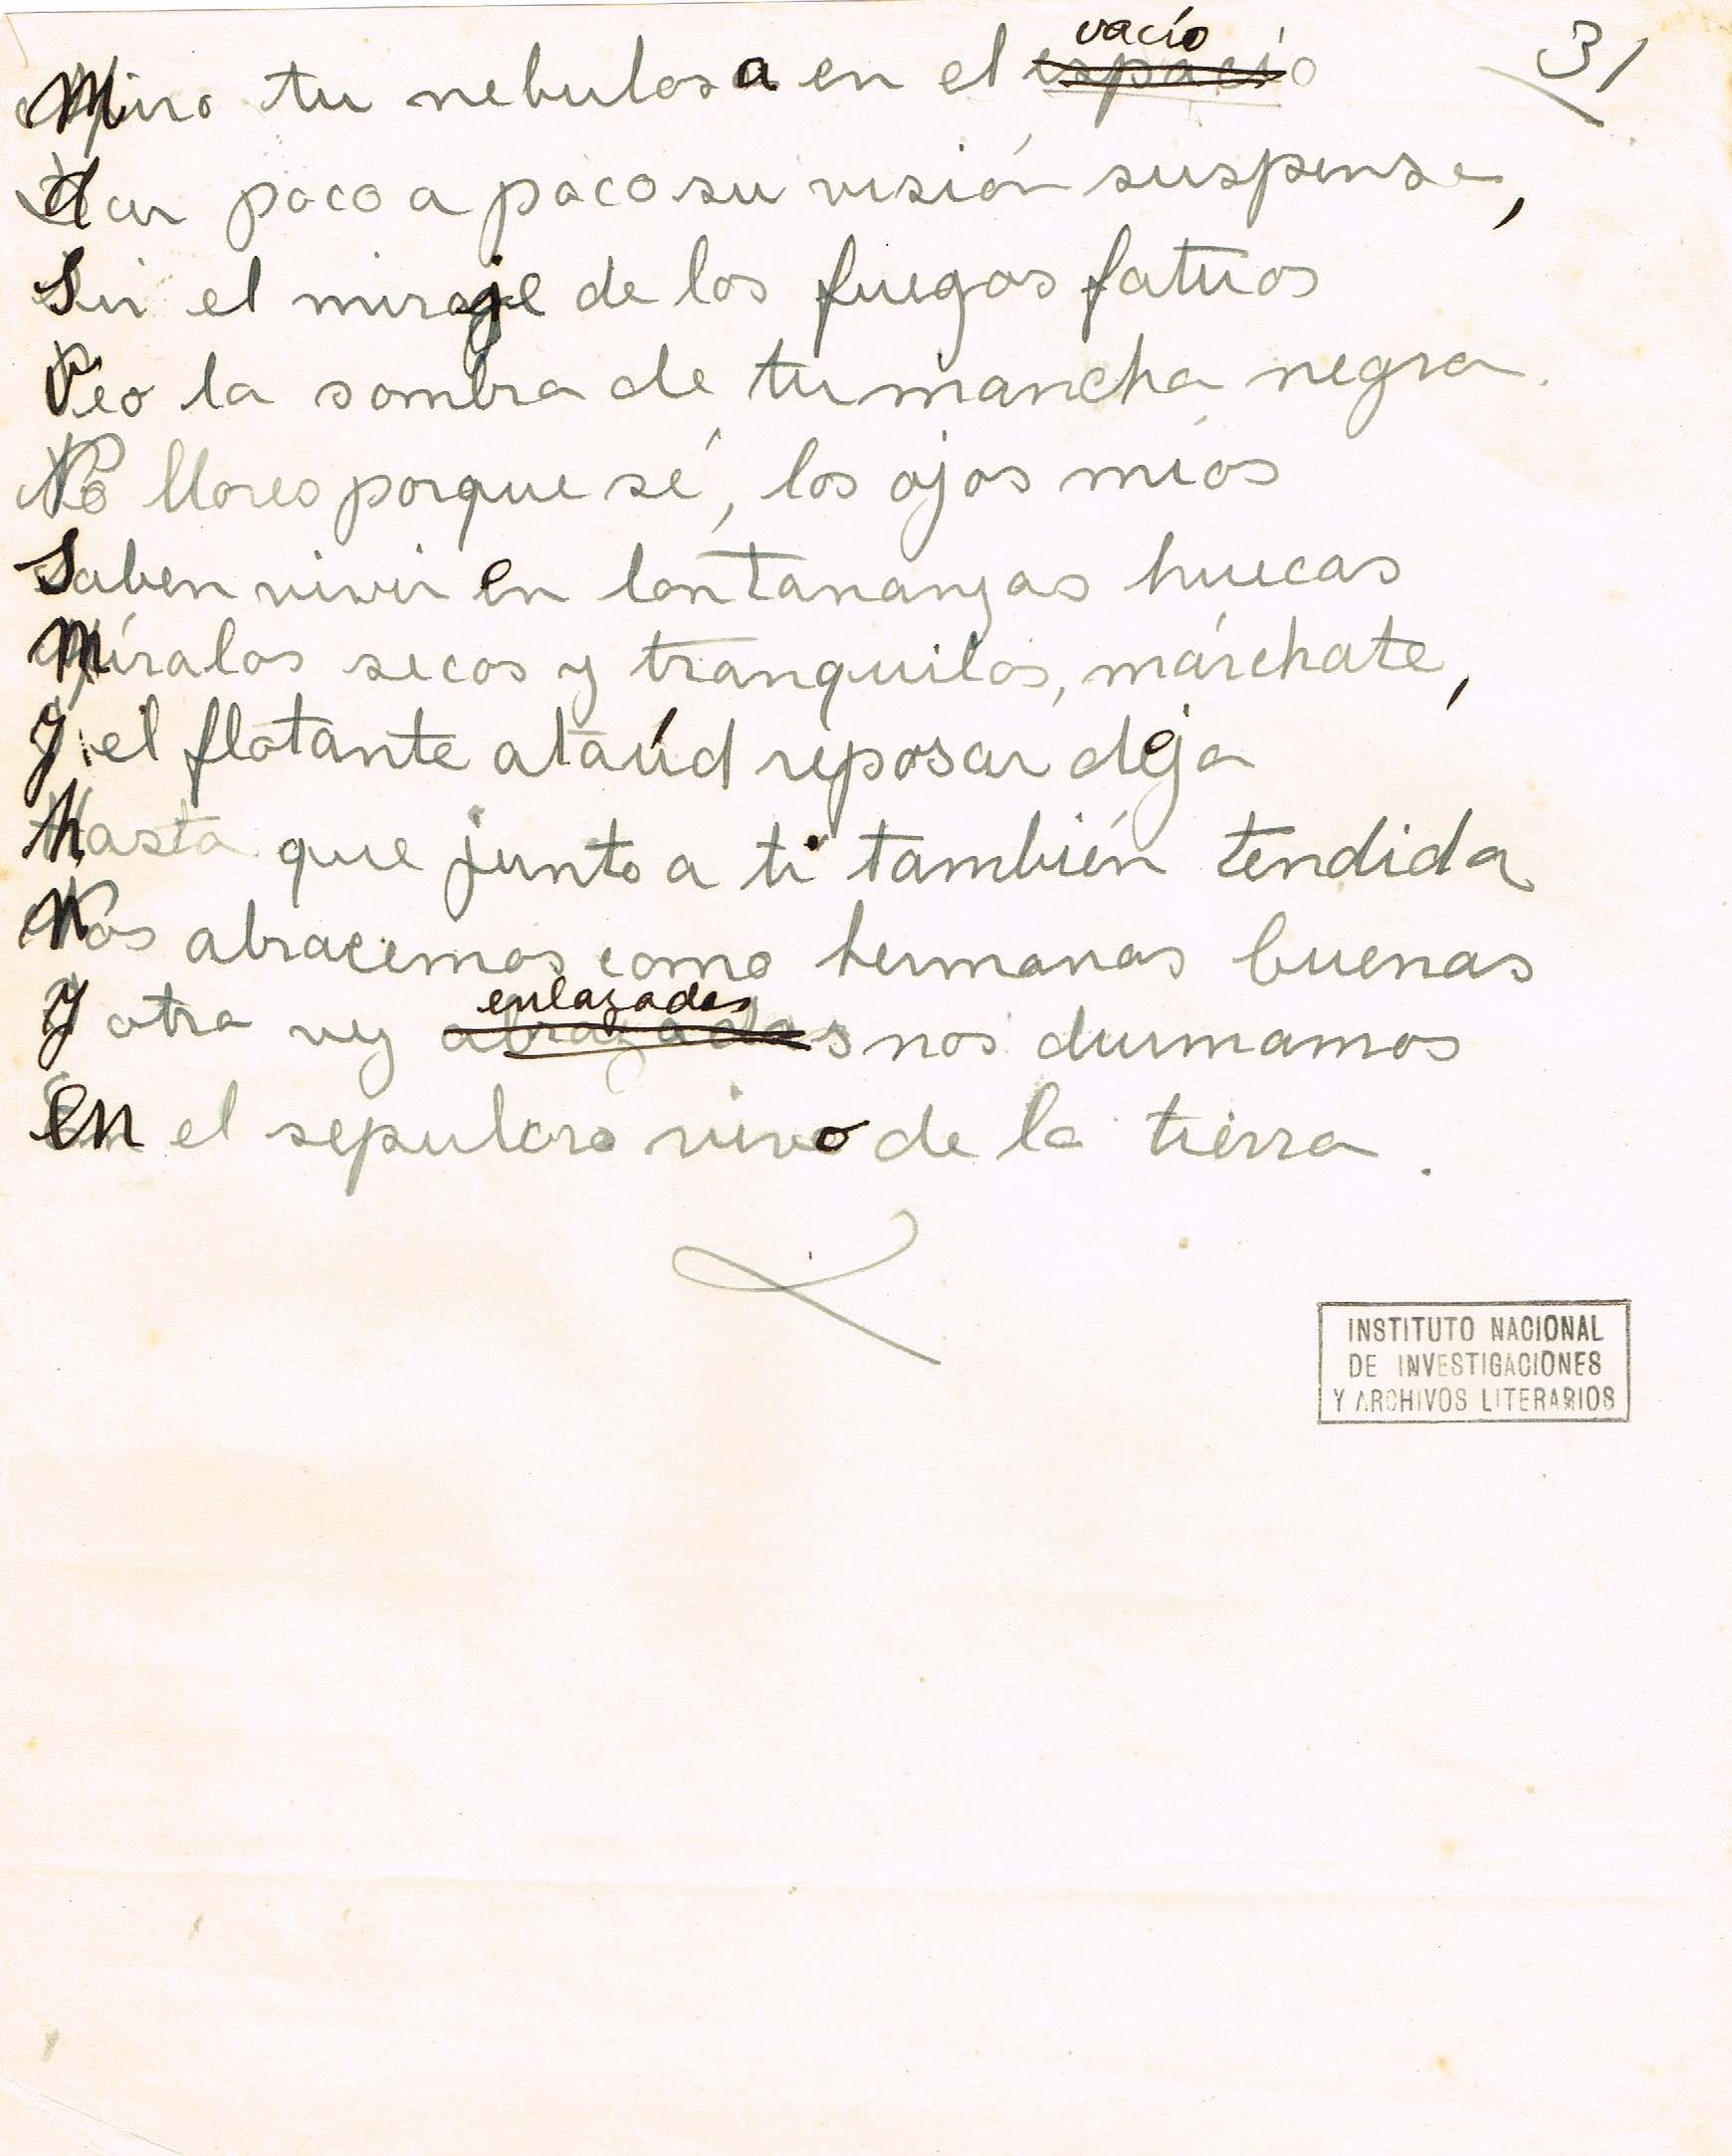 31
vacío
Miro tu nebulosa en el espacio
dar poco a poco su visión suspensa,
Sin el miraje de los fuegos fatuos
Veo la sombra de tu mancha negra.
No llores porque sé, los ojos míos
Saben vivir en lontananzas huecas
Míralos secos y tranquilos, márchate,
Y el flotante ataúd reposar deja
Hasta que junto a ti también tendida
Nos abracemos como hermanas buenas
enlazadas
Y otra vez abrazadas nos durmamos
En el sepulcro vivo de la tierra.
INSTITUTO NACIONAL
DE INVESTIGACIONES
Y ARCHIVOS LITERARIOS